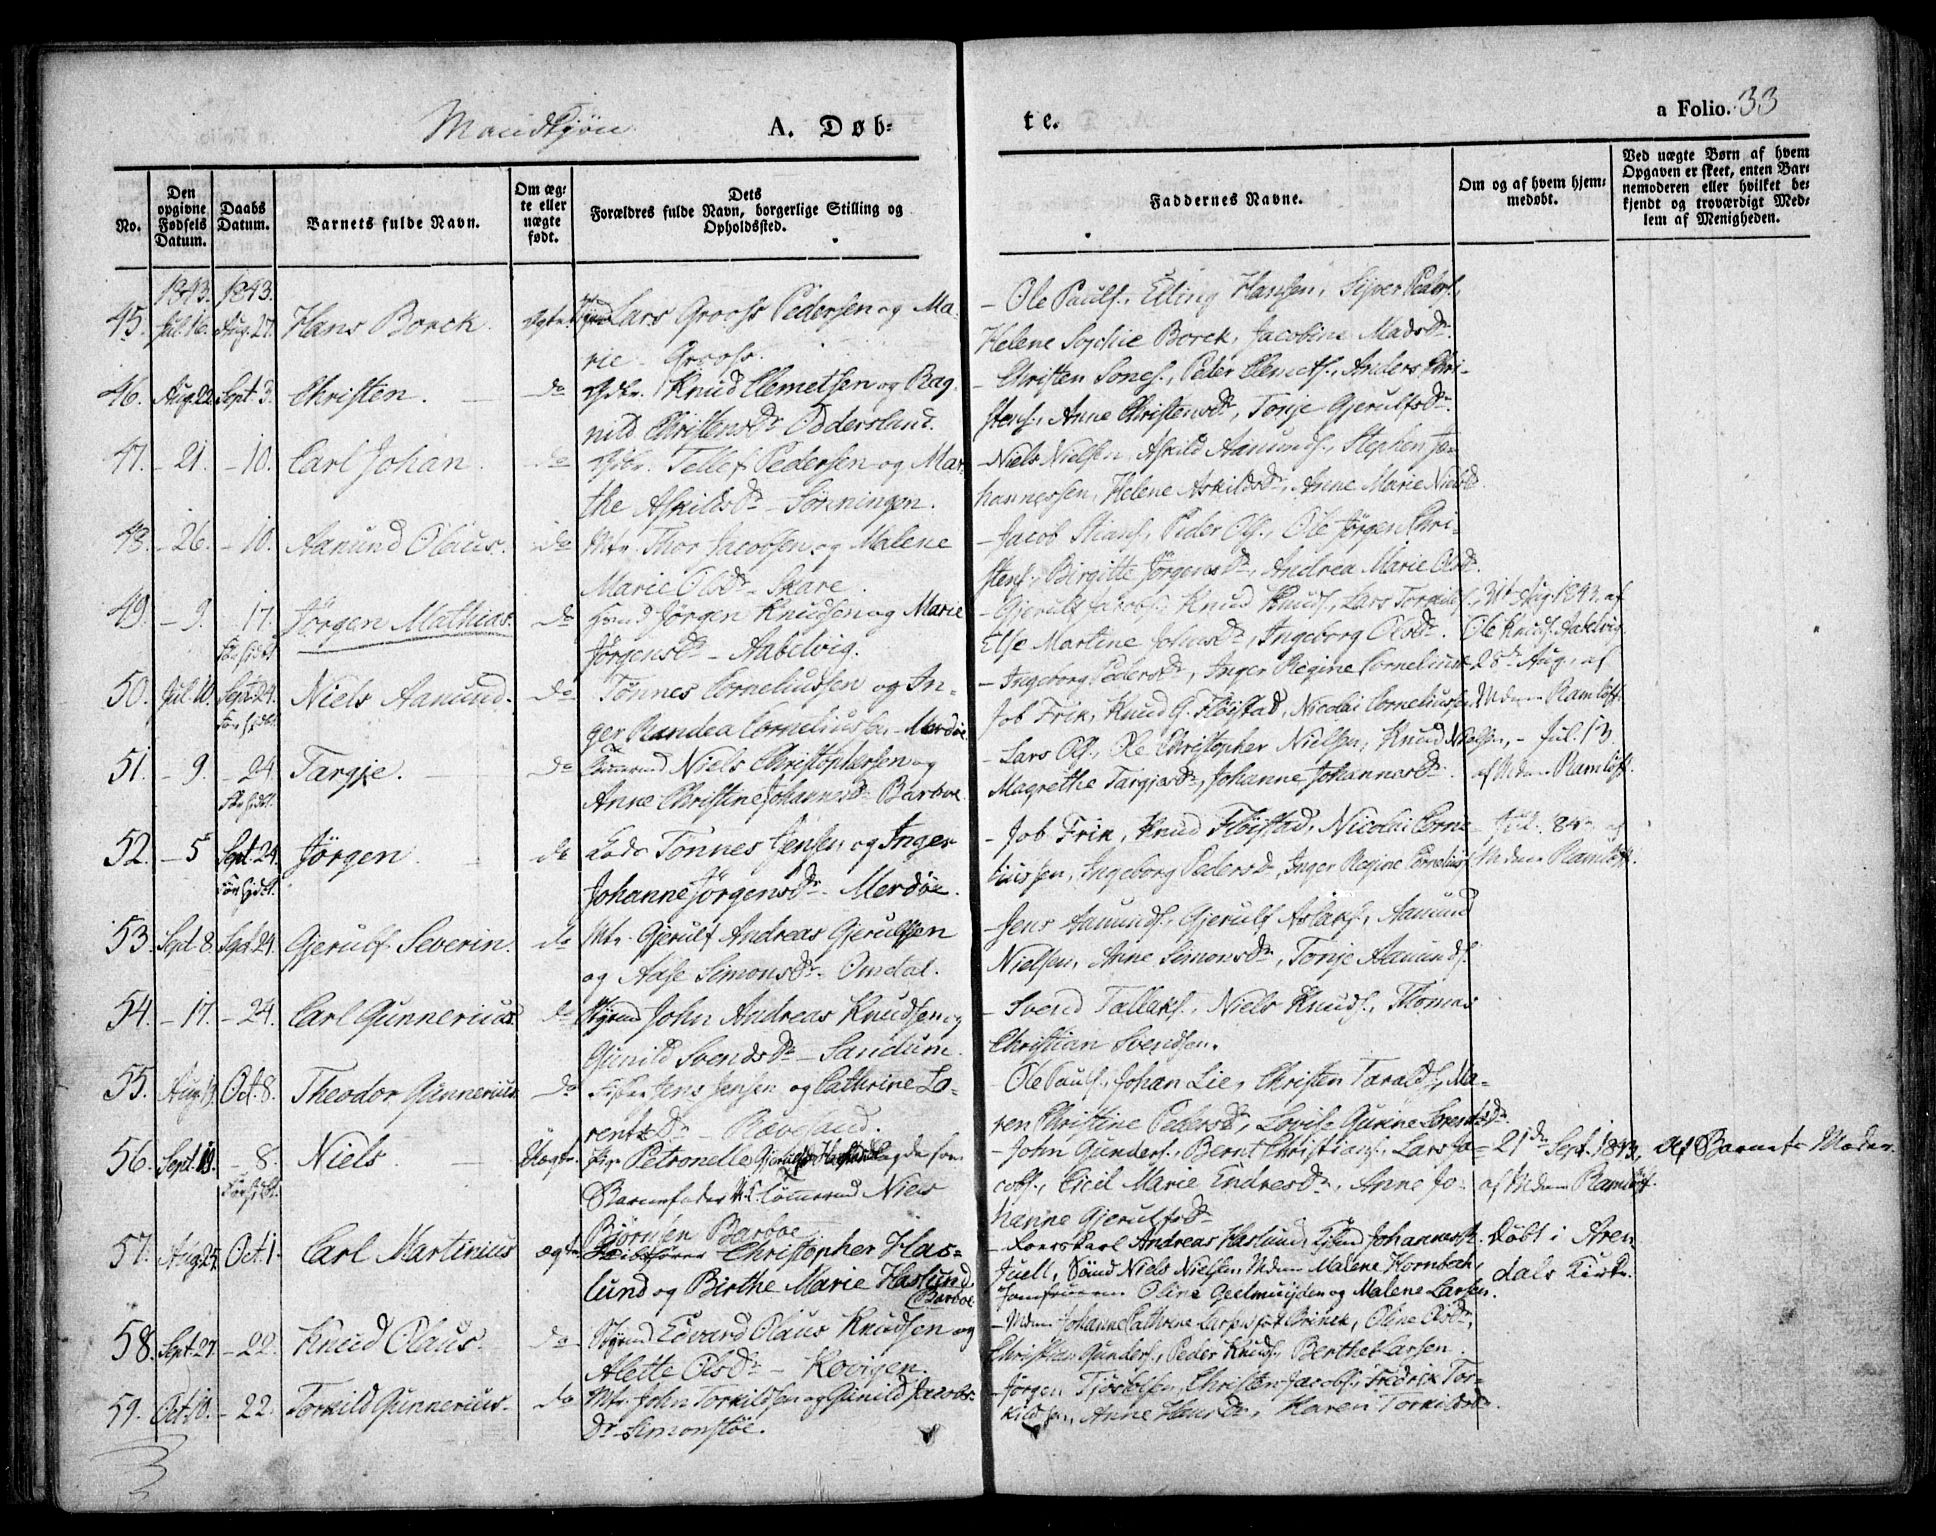 Mandkjøn
A. Døb-
te.
a Folio. 33
No.
Den opgivne Fødsels Datum.
Daabs Datum.
Barnets fulde Navn.
Om ægte eller uægte født.
Dets Forældres fulde Navn, borgerlige Stilling og Opholdssted.
Faddernes Navne.
Om og af hvem hjemmedøbt.
Ved uægte Børn af hvem Opgaven er skeet, enten Barnemoderen eller hvilket bekjendt og troværdigt Medlem af Menigheden.
1843. 1843.
45. Jul. 16. Aug. 27. Hans Borck. Ægte. Lars Grooss Pedersen og Ma-
rie Grooss.
- Ole Pauls., Elling Hansen, Siver Peders.,
Helene Sophie Borck, Jacobine Madsdr.
46. Aug. 22. Sept. 3. Christen. do Knud Clemetsen og Rag-
nild Christensdr. Oddersland.
- Christen Jones., Peder Clemets., Anders Chri-
stens., Anne Christensdr., Tonje Gjerulfsdr.
47. - 21. - 10. Carl Johan. do Tellef Pedersen og Mar-
the Askildsdr. - Sønningen.
- Niels Nielsen, Askild Aamunds., Stephen Jo-
hannessen, Helene Askildsdr., Anne Marie Nielsdr.
48. - 26. - 10. Aanund Olaus. do Mtr. Thor Jacobsen og Malene
Marie Olsdr. - Skare.
- Jacob Stians., Peder Ols., Ole Jørgen Chri-
stens., Birgitte Jørgensdr., Andrea Marie Olsdr.
49. - 9. 17. Jørgen Mathias. do Jørgen Knudsen og Marie
Jørgensdr. - Aabelvig.
- Gjerulf Jacobs., Knud Knuds., Lars Torkilds.,
Else Martine Johnsdr., Ingeborg Olsdr.
31te Aug. 1843. af
Ole Knuds. Aabelvig.
50. Jul. 10. Sept. 24. Niels Aamund. do Tønnes Corneliussen og In-
ger Randea Corneliusdr. - Merdøe.
- Ingeborg Pedersdr., Inger Regine Corneliusdr.
Job Frik, Knud G. Fløistad, Nicolai Corneliussen
28de Aug. af
Mdm. Ramløff.
51. - 9. - 24. Targje. do Tømmermd. Niels Christophersen og
Anne Christine Johannesdr. Barboe.
- Lars Ols., Ole Christopher Nielsen, Knud Nielsen,
Magrethe Targjesdr., Johanne Johannesdr.
- Jul. 13
af Mdm. Ramløff.
52. - 5 Sept. 24. Jørgen. do Lods Tønnes Jensen og Inger
Johanne Jørgensdr. - Merdøe.
- Job Frik, Knud Fløistad, Nicolai Corne-
liussen, Ingeborg Pedersdr., Inger Regine Cornelius
Jul. 8de af
Mdm. Ramløff.
53. Sept. 8. Sept. 24. Gjerulf Severin. do Mtr. Gjerulf Andreas Gjerulfsen
og Aase Simonsdr. - Omdal.
Jens Aamunds., Gjerulf Aslaks., Aamund
Nielsen, Anne Simonsdr., Tonje Aamunds.
54. - 17. - 24. Carl Gunnerius. do Styrmd. John Andreas Knudsen og
Gunild Svendsdr. - Sandum.
- Svend Tallaks., Niels Knuds., Thomas
Christian Svendsen.
55. Aug. 13. Oct. 8. Theodor Gunnerius. do Fisker Jens Jensen og Cathrine Lo-
rentzdr. - Rævesand.
- Ole Pauls., Johan Lie, Christen Taralds., Ma-
ren Christine Pedersdr., Lovise Gurine Lorentzdr.
56. Sept. 19. - 8. Niels Uægte. Petronelle
Barnefader Tømmermd. Niels
Bjørnsen Barboe
- John Gunders., Bernt Christians., Lars Ja-
cobs., Cicil Marie Endresdr., Anne Jo-
hanne Gjerulfsdr.
21de Sept. 1843.
af Mdm. Ramløff.
Af Barnets Moder.
57. Aug. 25. Oct. 1. Carl Martinius ægte Christopher Has-
lund og Birthe Marie Haslund
Barboe
- Andreas Haslund, Johannes
Juell, Niels Nielsen, Mdm. Malene Hornbech,
Jomfruerne Oline Geelmuijden og Malene Larsen.
Døbt i Aren
dals Kirke.
58. Sept. 27. - 22. Knud Olaus. do Styrmd. Edvard Olaus Knudsen og
Alette Olsdr. - Kovigen.
- Mdm. Johanne Cathrine Larsen født Brinck, Oline Olsdr.,
Christian Gunders., Peder Knuds., Berthe Larsen.
59. Oct. 10. - 22. Torkild Gunnerius. do Mtr. John Torkildsen og Gunild Jacobs-
dr. - Simonstøe.
- Jørgen Tjøstolsen, Christen Jacobs., Fredrik Tor-
kildsen, Anne Hansdr., Karen Torkildsdr.